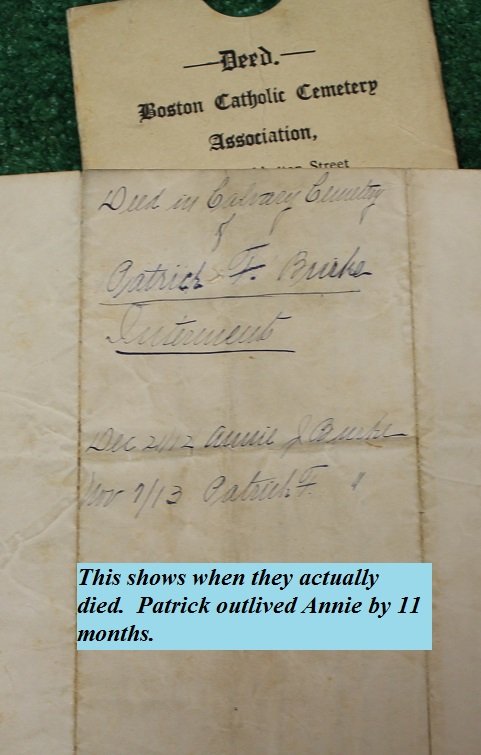 —Deed.—
Boston Catholic Cemetery
Association,
Street
Deed in Calvary Cemetery
of
Patrick F. Burke
Interment
Dec 21/12 Annie J Burke
Nov 7/13 Patrick F. "
This shows when they actually
died. Patrick outlived Annie by 11
months.